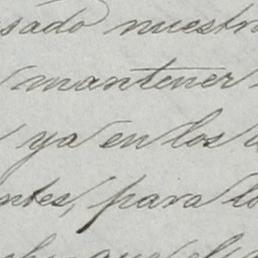 sado nuestra
mantener
ya en los
ntes, para lo